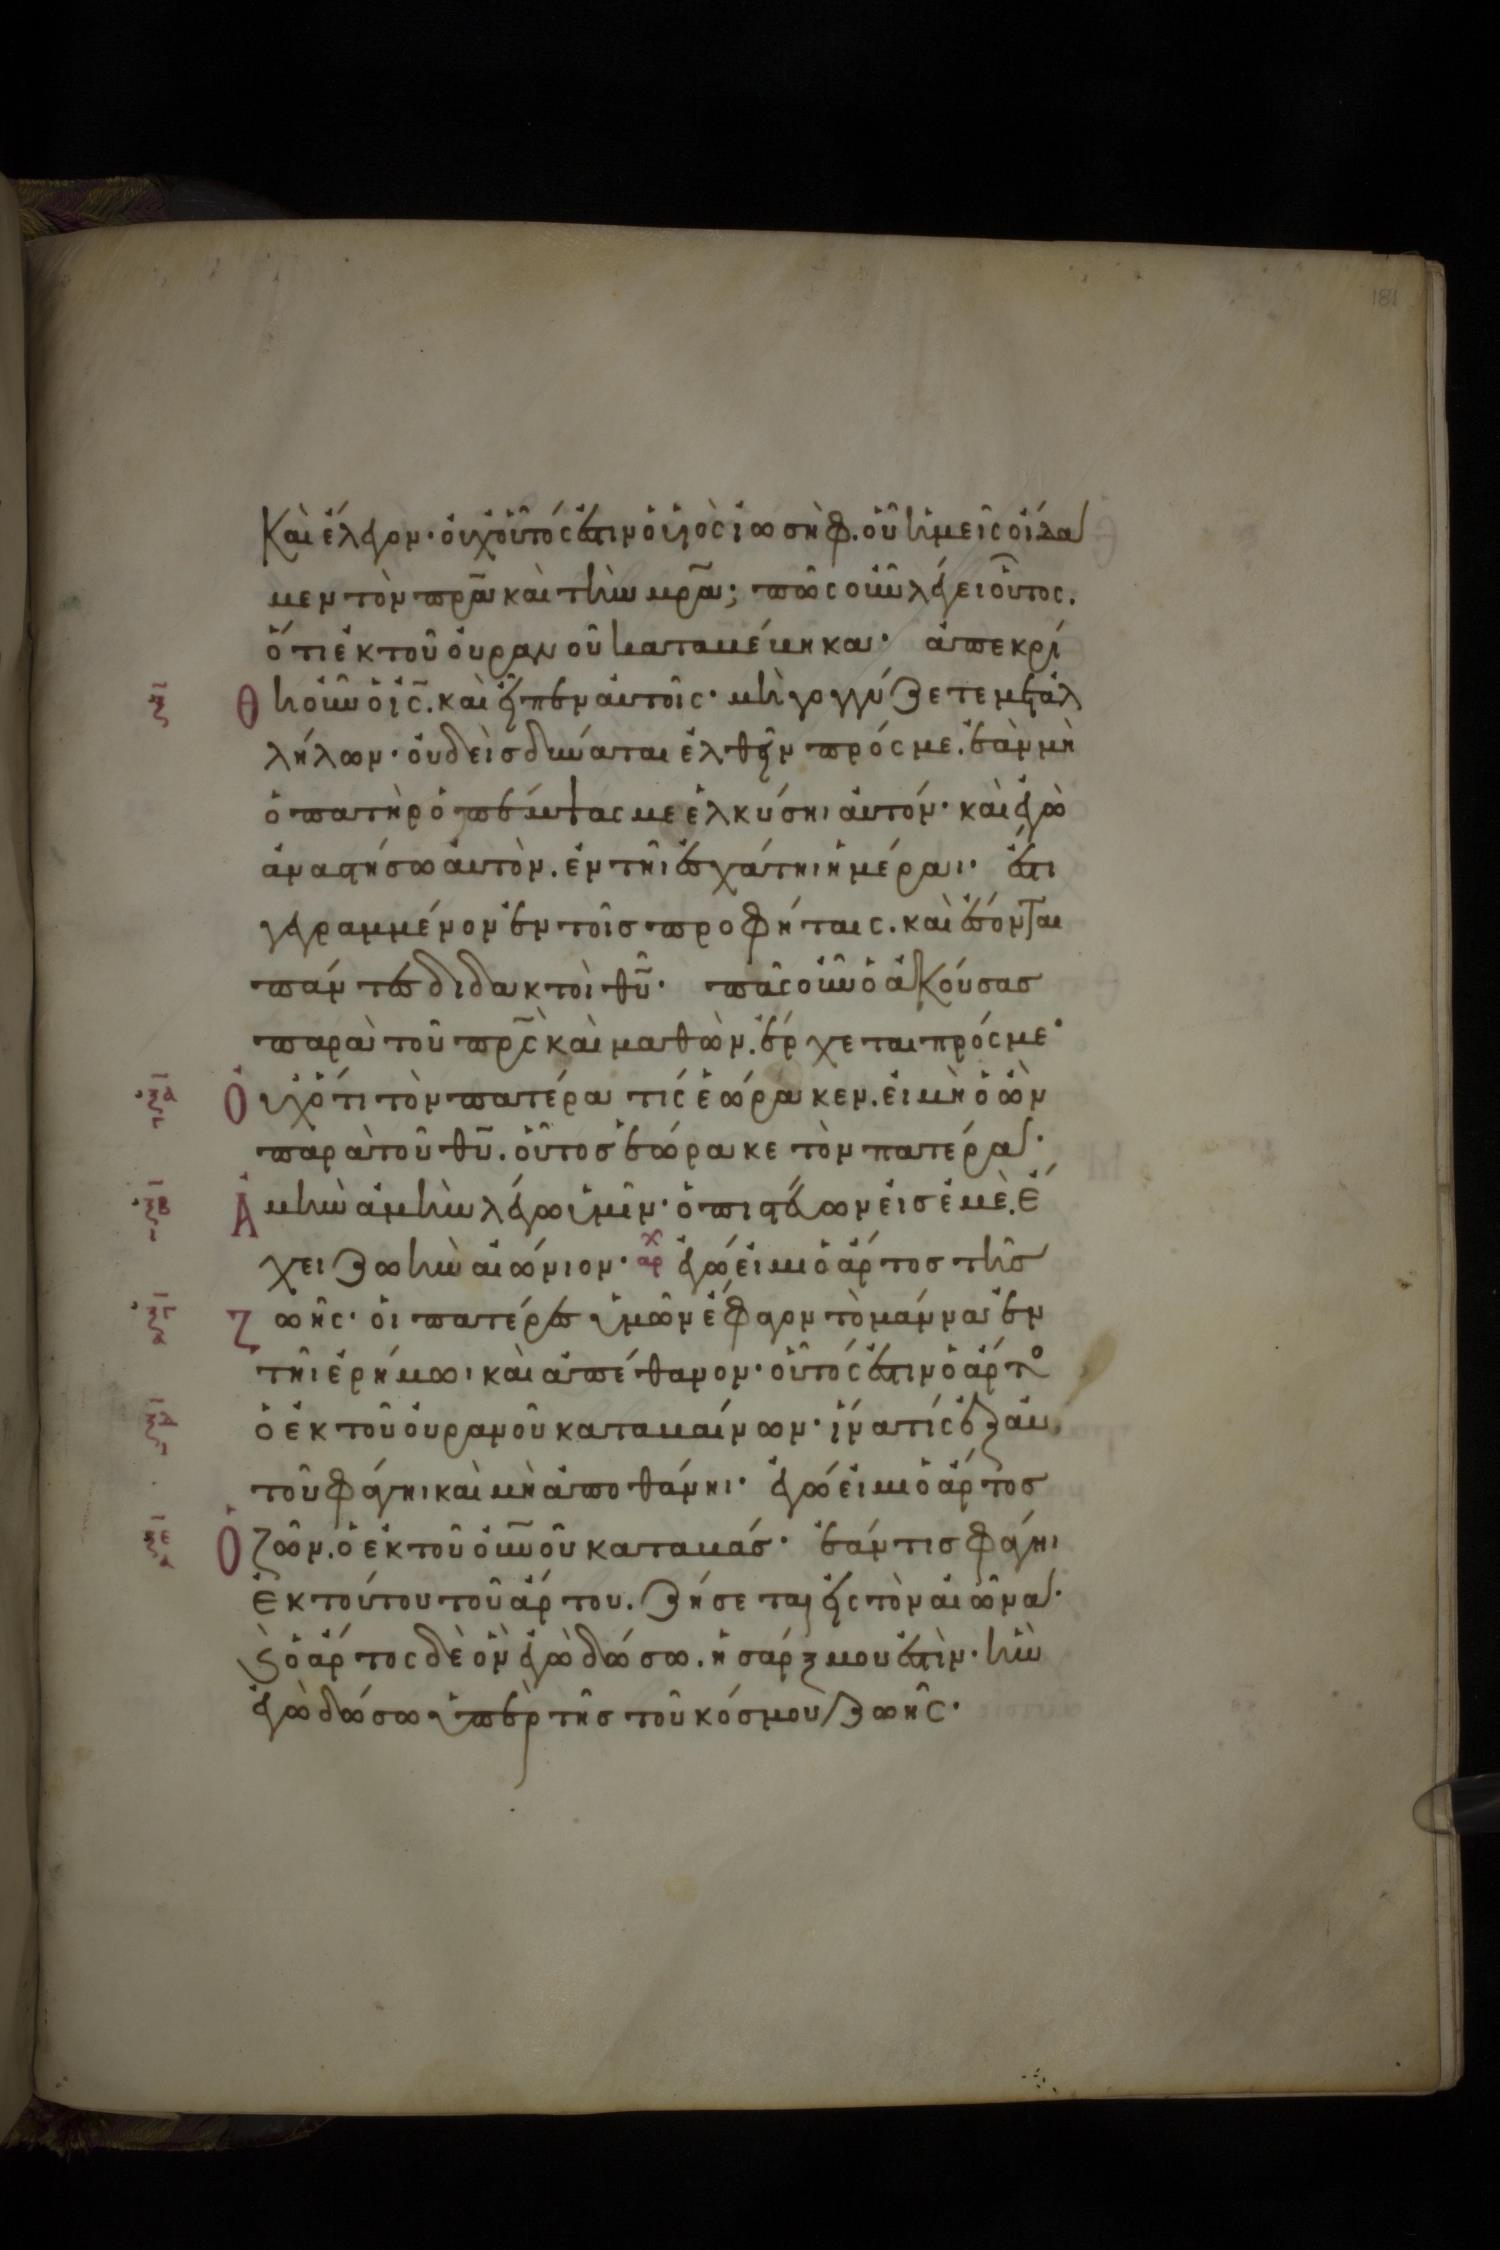 181
καὶ ἔλεγον· οὐχ οὗτός ἐστιν ὁ υἱὸς ἰωσὴφ. οὗ ἡμεῖς οἴδα
μεν τὸν πρ̅α καὶ τὴν μρ̅α; πῶς οὖν λέγει οὗτος.
ὅτι ἐκ τοῦ οὐρανοῦ καταβέβηκα· ἀπεκρί
ξ̅ θη οὖν ὁ ι̅ς̅. καὶ εἶπεν αὐτοῖς· μὴ γογγύζετε μετ ἀλ
λήλων· οὐδεὶς δύναται ἐλθεῖν πρός με. ἐὰν μὴ
ὁ πατὴρ ὁ πέμψας με ἑλκύσηι αὐτόν· καὶ ἐγὼ
ἀναστήσω αὐτὸν. ἐν τῆι ἐσχάτηι ἡμέραι· ἔστι
γεγραμμένον ἐν τοῖς προφήταις. καὶ ἔσονται
πάντες διδακτοὶ θ̅υ̅· πᾶς οὖν ὁ ἀκούσας
παρὰ τοῦ πρ̅ς καὶ μαθὼν. ἔρχεται πρός με·
ξ̅α̅ Οὐχ ὅτι τὸν πατέρα τίς ἑώρακεν. εἰ μὴ ὁ ὢν
παρὰ τοῦ θ̅υ̅. οὗτος ἑώρακε τὸν πατέρα·
ξ̅β̅ Ἀμὴν ἀμὴν λέγω ὑμῖν· ὁ πιστεύων εἰς ἐμὲ. ἔ
χει ζωὴν αἰώνιον· αρχ ἐγώ εἰμι ὁ ἄρτος τῆς
ξ̅γ̅ ζωῆς· οἱ πατέρες ὑμῶν ἔφαγον τὸ μάννα ἐν
τῆι ἐρήμωι καὶ ἀπέθανον· οὗτός ἐστιν ὁ ἄρτο
ξ̅δ̅ ὁ ἐκ τοῦ οὐρανοῦ καταβαίνων· ἵνα τίς ἐξ αὐ
τοῦ φάγηι καὶ μὴ ἀποθάνηι· ἐγώ εἰμι ὁ ἄρτος
ξ̅ε̅ Ὁ ζῶν. ὁ ἐκ τοῦ ου̅νοῦ καταβάς· ἐάν τις φάγηι
ἐκ τούτου τοῦ ἄρτου. ζήσεται εἰς τὸν αἰῶνα·
ϗ ὁ ἄρτος δὲ ὃν ἐγὼ δώσω. ἡ σάρξ μου ἐστὶν· ἣν
ἐγὼ δώσω ὑπὲρ τῆς τοῦ κόσμου ζωῆς·